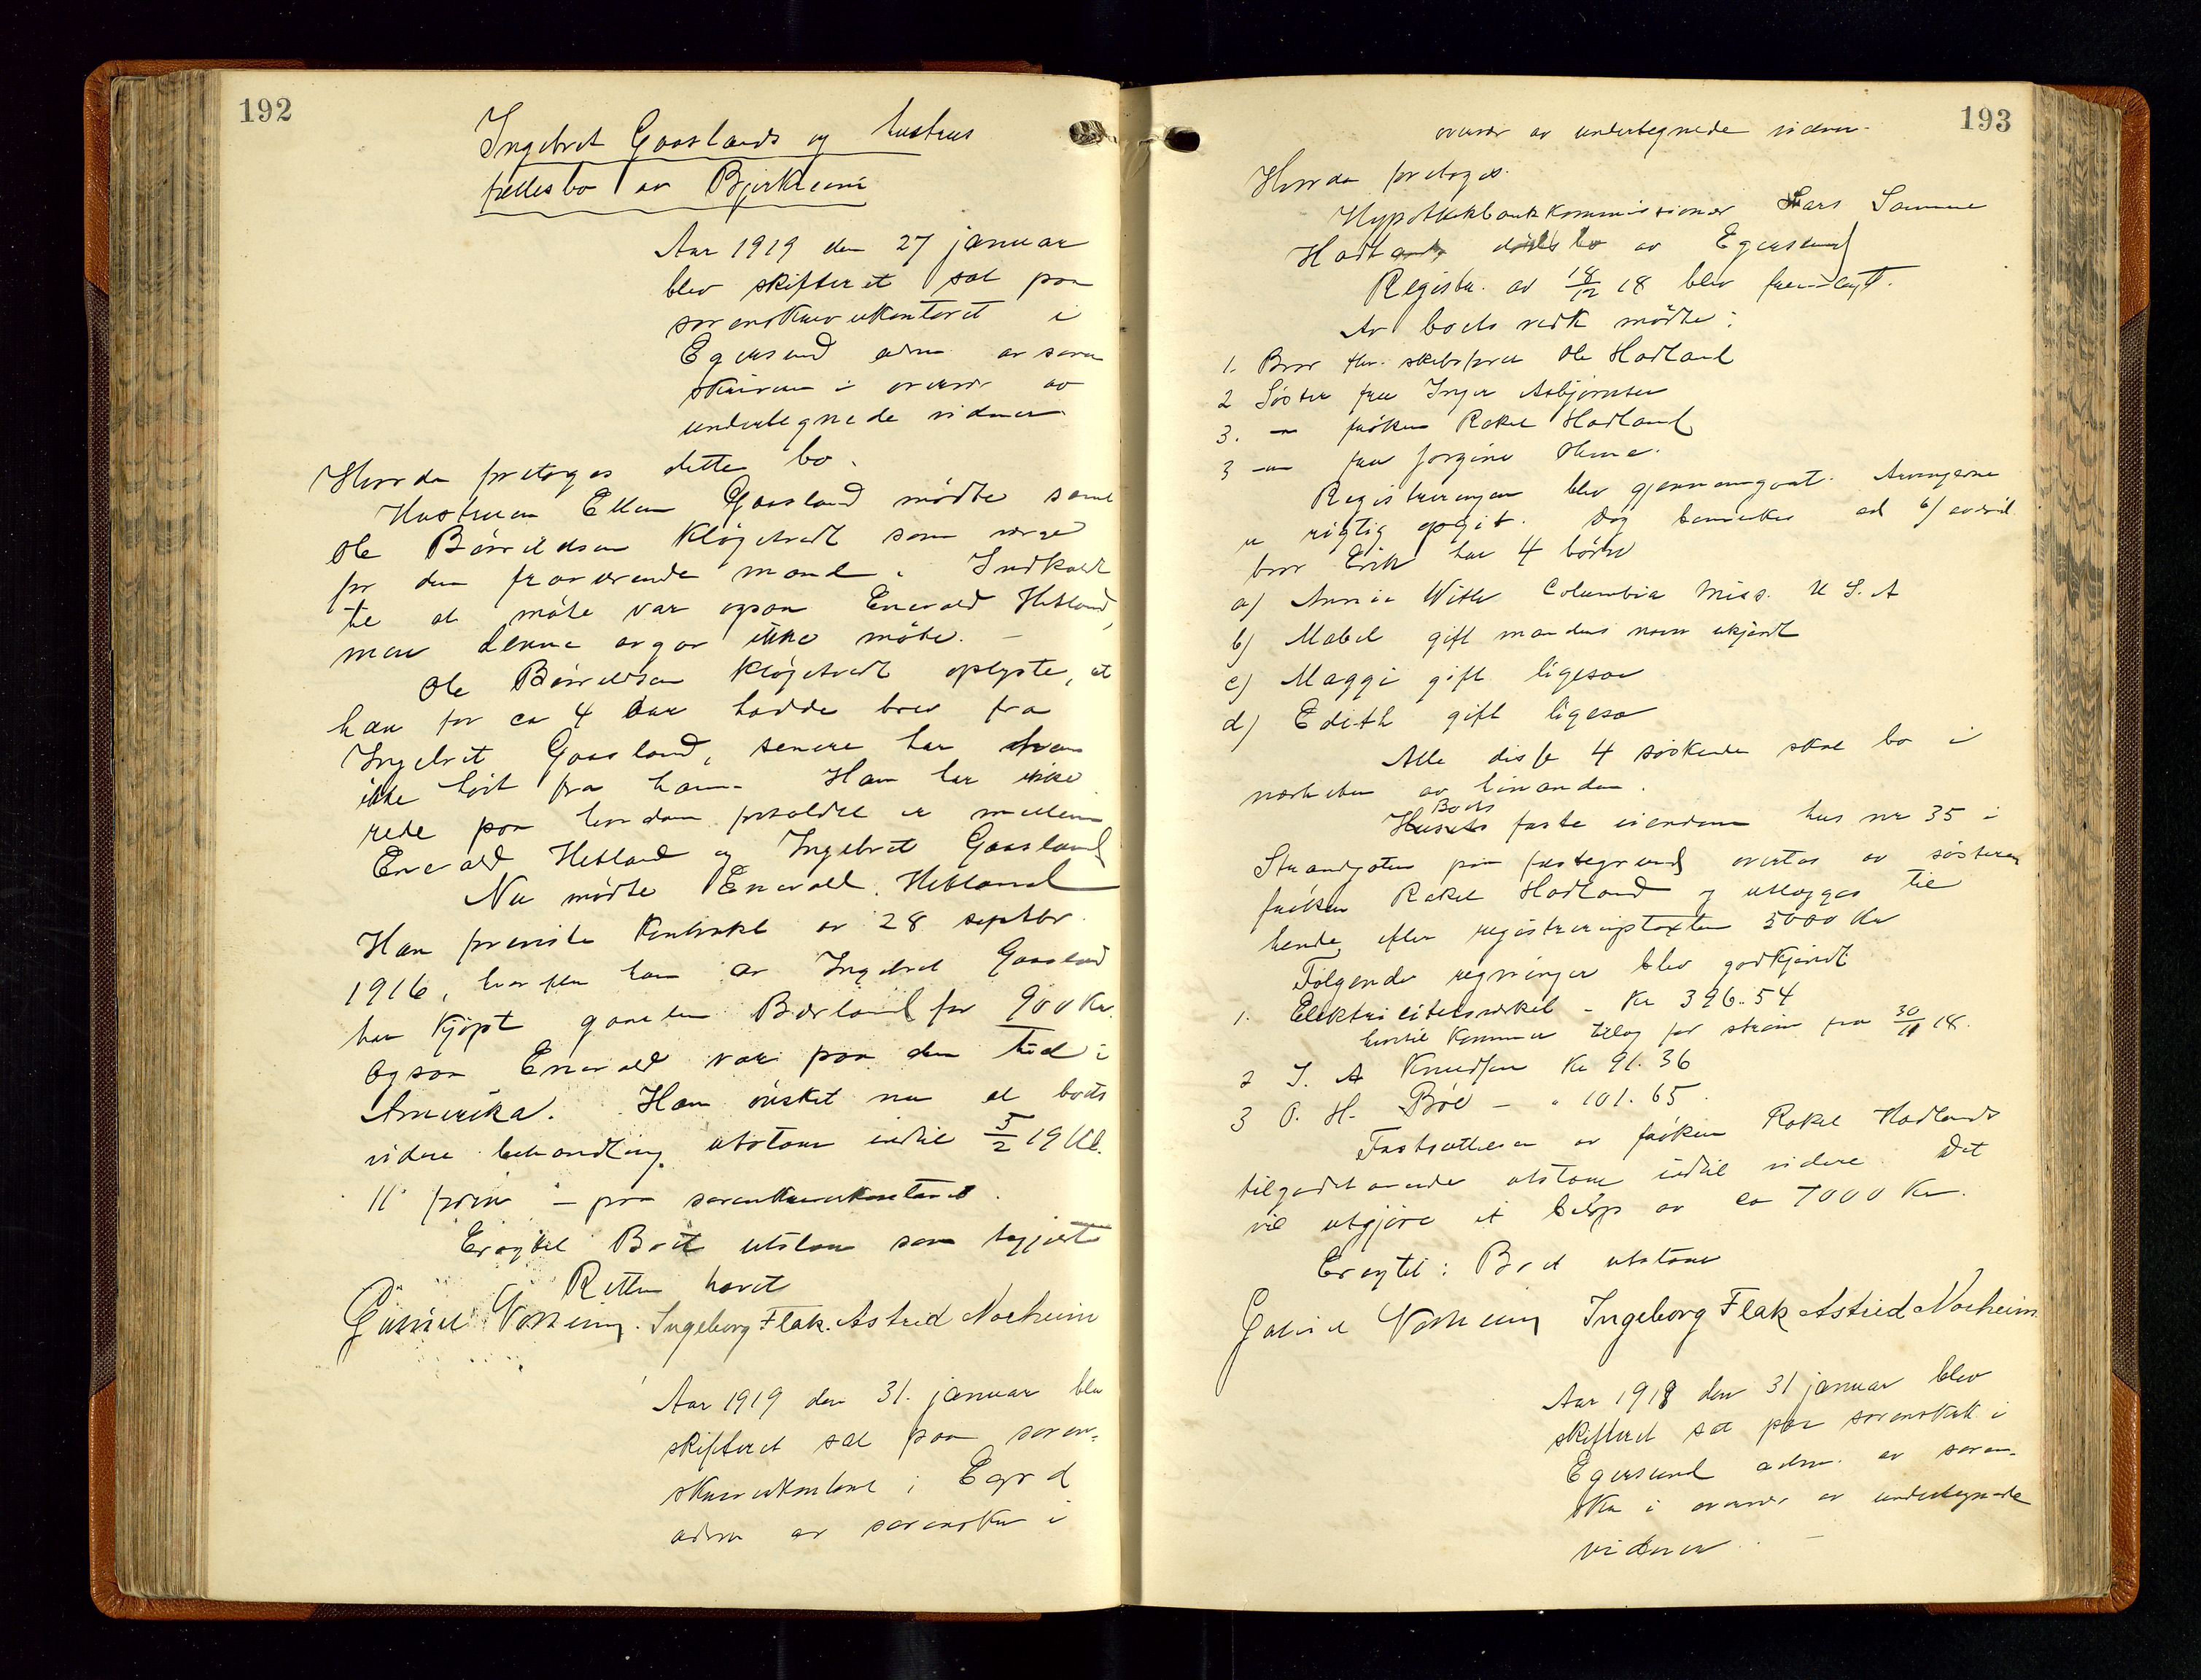 192
Ingebret Gaaslands og hustrus
fællesbo av Bjerkreim
Aar 1919 den 27 januar
blev skifteret sat paa
sorenskriverkontoret i
Egersund adm. av soren
skriveren i overvær av
undertegnede vidner
Hvorda foretoges dette bo.
Hustruen Ellen Gaasland mødte samt
Ole Bårdsen Kløgetvedt som verge
for den fraværende mand. Indkaldt
te at møte var ogsaa Enevald Hetland,
men denne avgav ikke møte. –
Ole Bårdsen Kløgetvedt oplyste, at
han for ca 4 aar hadde brev fra
Ingebret Gaasland, senere har han
ikke hørt fra ham. Han har ikke
rede paa hvordan forholdet er mellem
Enevald Hetland og Ingebret Gaasland
Nu mødte Enevald Hetland
Han foreviste kontrakt av 28 septbr.
1916, hvorefter han av Ingebret Gaasland
har kjøpt gaarden Bærland for 900 Kr.
Ogsaa Enevald var paa den tid i
Amerika. Han ønsket nu at boets
videre behandling utstaar indtil 5/2 19 kl.
11 form – paa sorenskriverkontoret.
Eragtet: Boet utstaar som begjært
Retten hævet
Gabriel Ingeborg Flak. Astrid Norheim
Aar 1919 den 31. januar blev
skifteret sat paa soren-
skriverkontoret i Egersund
adm av sorenskr i
193
overvær av undertegnede vidner.
Hvorda foretoges
Hypothekbankkommissionær Lars Samme
Hadlands dødsbo av Egersund
Registr. av 18/12 18 blev fremlagt.
Av boets vedk mødte:
1. Bror fhv. skibsfører Ole Hadland
2 Søster fru Inger Asbjørnsen
3. – frøken Rakel Hadland
3 – fru Jorgine
Registreringen blev gjennemgaat. Arvingerne
er rigtig opgit. Dog bemerkes at b) avdød
bror Erik har 4 børn
a) Annie With Columbia Miss. U S. A
b) Mabel gift mandens navn ukjendt
c) Maggi gift ligesaa
d) Edith gift ligesaa
Alle disse 4 søskende skal bo i
nærheten av hinanden.
Boets
Husets faste eiendom hus nr 35 i
Strandgaten paa festegrund overtas av søsteren
frøken Rakel Hadland og utlægges til
hende efter registreringstaxten 5000 Kr
Følgende regninger blev godkjendt
1. Elektricitetsverket – Kr 396.54
hertil kommer tillæg for strøm fra 30/11 18.
2 I. A Knudsen Kr 91.36
3 O. H. Bøe – " 101.65
Fastsættelsen av frøken Rakel Hadlands
tilgodehavende utstaar indtil videre. Det
vil utgjøre et beløp av ca 7000 Kr.
Eragtet: Boet utstaar
Gabriel Ingeborg Flak Astrid Norheim
Aar 1918 den 31 januar blev
skifteret sat paa sorenskrk i
Egersund adm. av soren-
skr i overvær av undertegnede
vidner. –